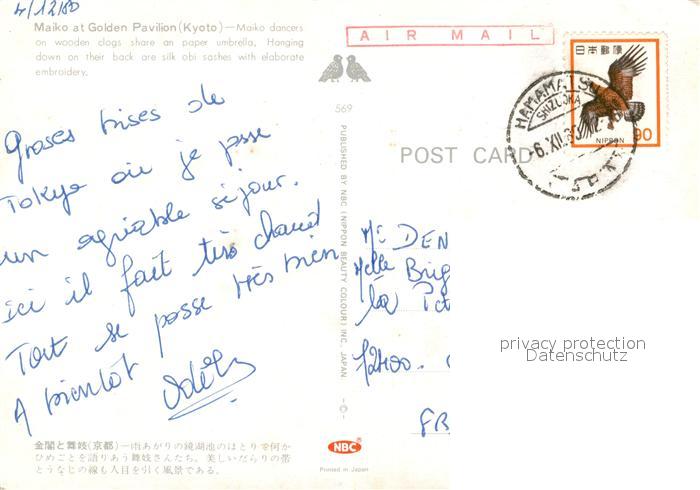 4/12/80
Maiko at Golden Pavilion (Kyoto)—Maiko dancers
on wooden clogs share an paper umbrella, Hanging
down on their back are silk obi sashes with elaborate
embroidery.
AIR MAIL
日本郵便
HAMAMATSU
SHIZUOKA
-6.XII.80
NIPPON 90
569
POST CARD
PUBLISHED BY NBC (NIPPON BEAUTY COLOUR) INC., JAPAN
Groses bises de
Tokyo où je passe
un agréable séjour.
ici il fait très chaud
Tout se passe très bien
A bientôt
Mr DEN
Melle Brig
la
FR
privacy protection
Datenschutz
NBC
Printed in Japan
金閣と舞妓(京都)—雨あがりの鏡湖池のほとりで何か
ひめごとを語りあう舞妓さんたち。美しいだらりの帯
とうなじの線も人目を引く風景である。